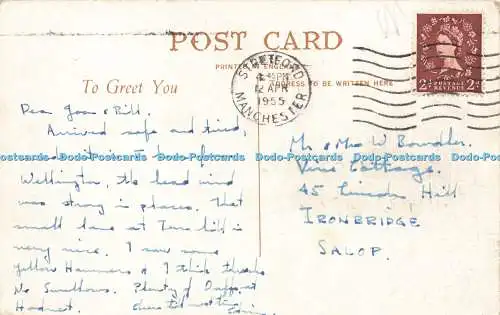 POST CARD
PRINTED IN ENGLAND
ADDRESS TO BE WRITTEN HERE
To Greet You
STRETFORD
4.45PM
12 APR
1955
MANCHESTER
2D POSTAGE REVENUE 2D
Dear Joan & Bill,
Arrived safe and tired,
Wellington, the head wind
was strong in places. That
small lane at
very nice. I saw some
yellow Hammers & I think thrushes
No Swallows. Plenty of Daffs at
Hodnet.
Mr & Mrs W Bowdler
Cottage
45 Lincoln Hill
IRONBRIDGE
SALOP.
Postcards Dodo-Postcards Dodo-Postcards Dodo-Postcards Dodo-Postcards
Postcards Dodo-Postcards Dodo-Postcards Dodo-Postcards Dodo-Postcards